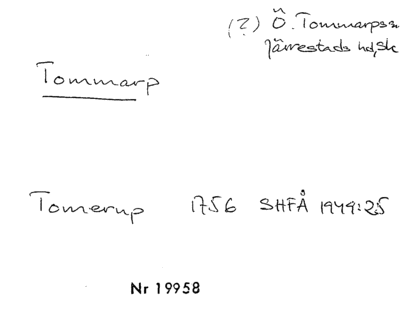 (?) Ö. Tommarps sn
Järrestads hd, Sk
Tommarp
Tomerup 1756 SHFÅ 1949:25
Nr 19958